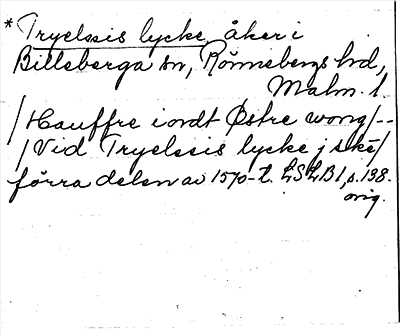 * Tryelssis lycke åker i
Billeberga sn, Rönnebergs hd,
Malm. l.
/Hauffre iordt Østre wong/--
/Vid Tryelssis lycke j skē/
förra delen av 1570-t. LSLB 1, s. 198.
orig.